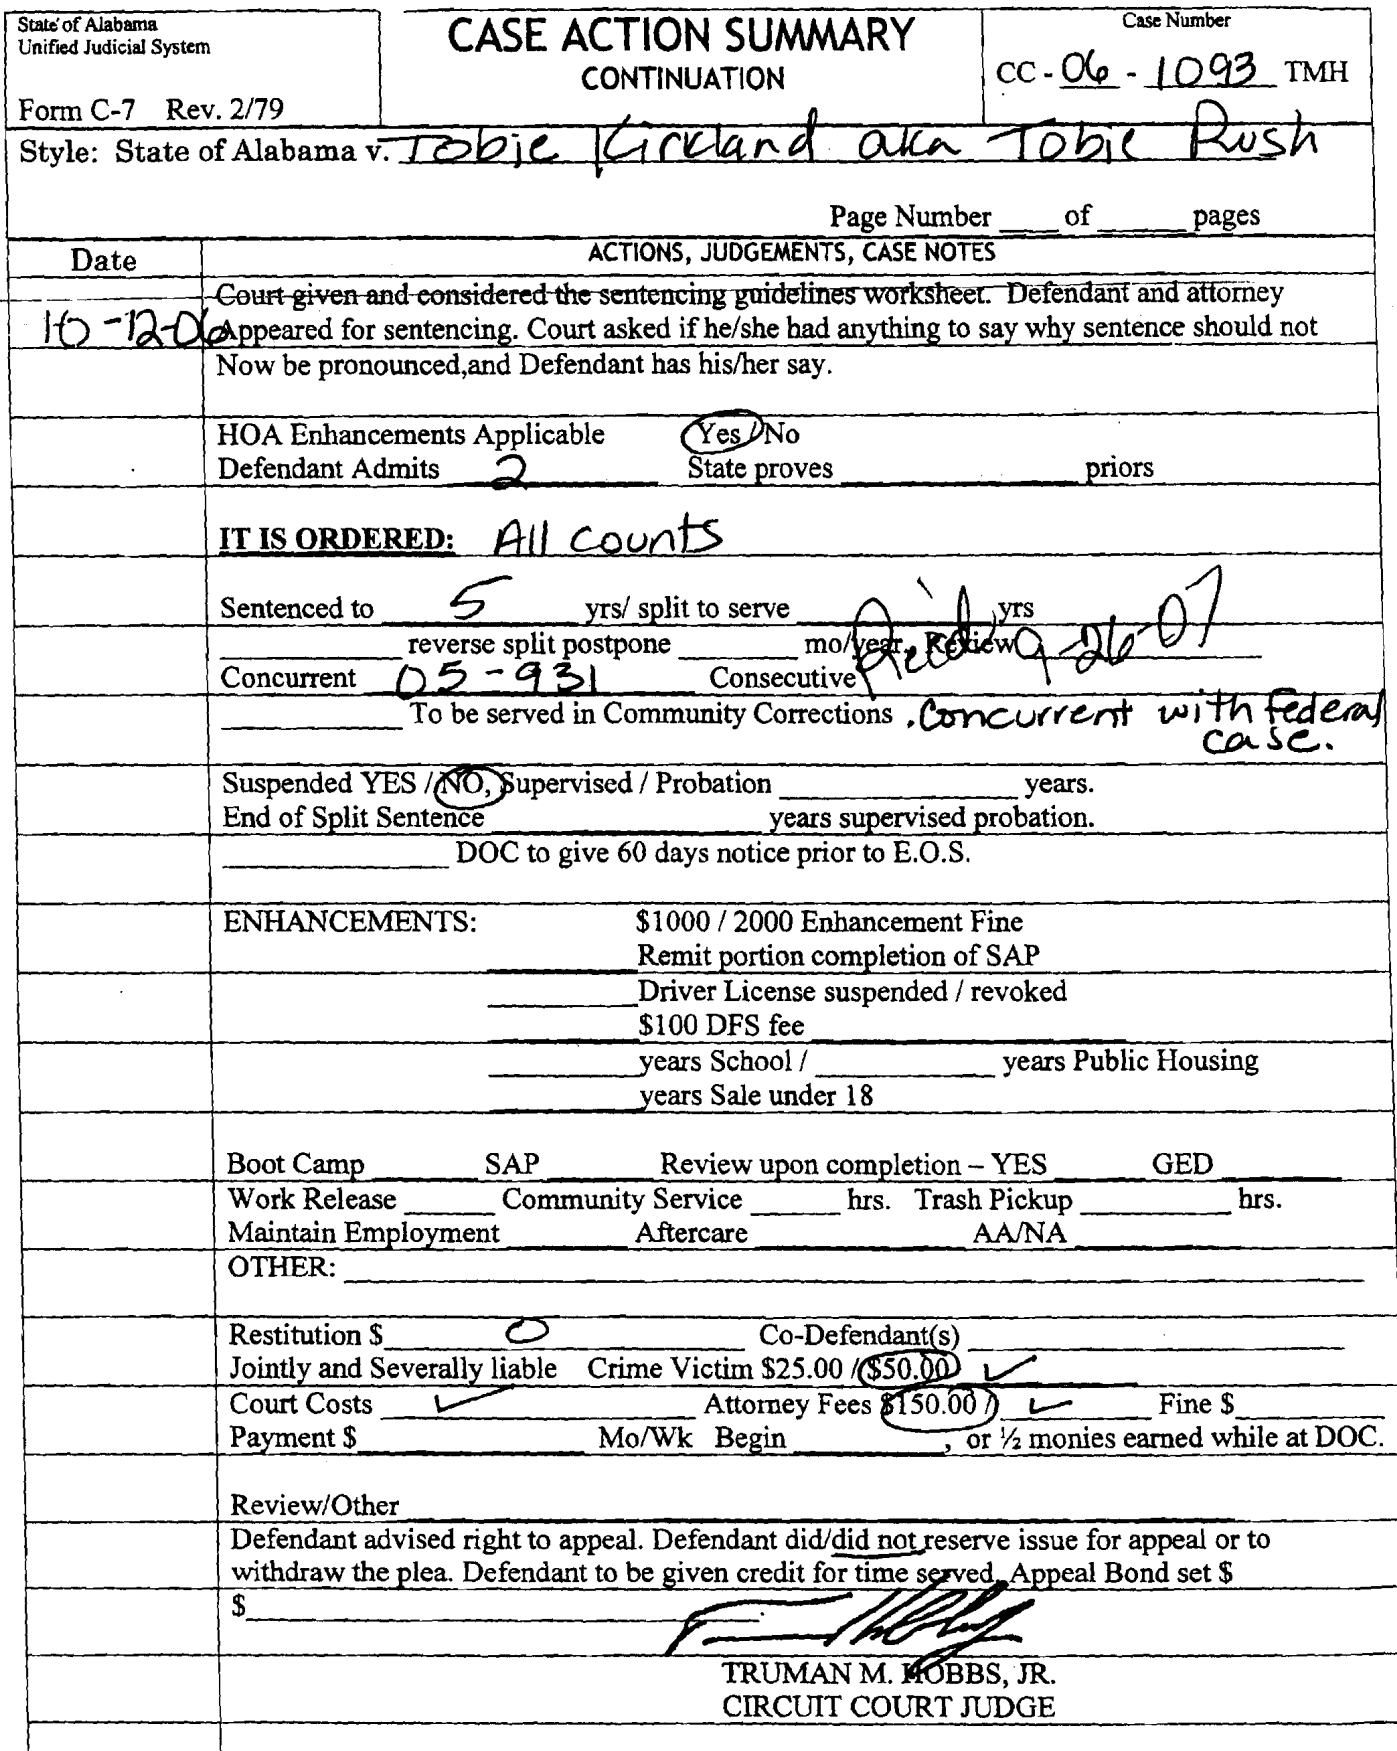 State of Alabama
Unified Judicial System
Form C-7 Rev. 2/79
CASE ACTION SUMMARY
CONTINUATION
Case Number
CC - 06 - 1093 TMH
Style: State of Alabama v. Tobie Kirkland aka Tobie Rush
Page Number ____ of ______ pages
Date
ACTIONS, JUDGEMENTS, CASE NOTES
Court given and considered the sentencing guidelines worksheet. Defendant and attorney
10-12-06 Appeared for sentencing. Court asked if he/she had anything to say why sentence should not
Now be pronounced,and Defendant has his/her say.
HOA Enhancements Applicable Yes / No
Defendant Admits 2 State proves ________ priors
IT IS ORDERED: All counts
Sentenced to 5 yrs/ split to serve ________ yrs
________ reverse split postpone ______ mo/year. Review 9-26-07
Concurrent 05-931 Consecutive
________ To be served in Community Corrections . Concurrent with federal
case.
Suspended YES / NO, Supervised / Probation ________ years.
End of Split Sentence ________ years supervised probation.
________ DOC to give 60 days notice prior to E.O.S.
ENHANCEMENTS: $1000 / 2000 Enhancement Fine
________ Remit portion completion of SAP
________ Driver License suspended / revoked
________ $100 DFS fee ________
________ years School / ________ years Public Housing
________ years Sale under 18
Boot Camp ______ SAP ______ Review upon completion – YES ______ GED ______
Work Release ______ Community Service ______ hrs. Trash Pickup ________ hrs.
Maintain Employment ________ Aftercare ________ AA/NA ________
OTHER: ________
Restitution $ 0 Co-Defendant(s) ________
Jointly and Severally liable Crime Victim $25.00 / $50.00 ✓
Court Costs ✓ Attorney Fees $150.00 / ✓ Fine $ ______
Payment $ ________ Mo/Wk Begin ________, or ½ monies earned while at DOC.
Review/Other ________
Defendant advised right to appeal. Defendant did/did not reserve issue for appeal or to
withdraw the plea. Defendant to be given credit for time served. Appeal Bond set $
$ ________.
TRUMAN M. HOBBS, JR.
CIRCUIT COURT JUDGE